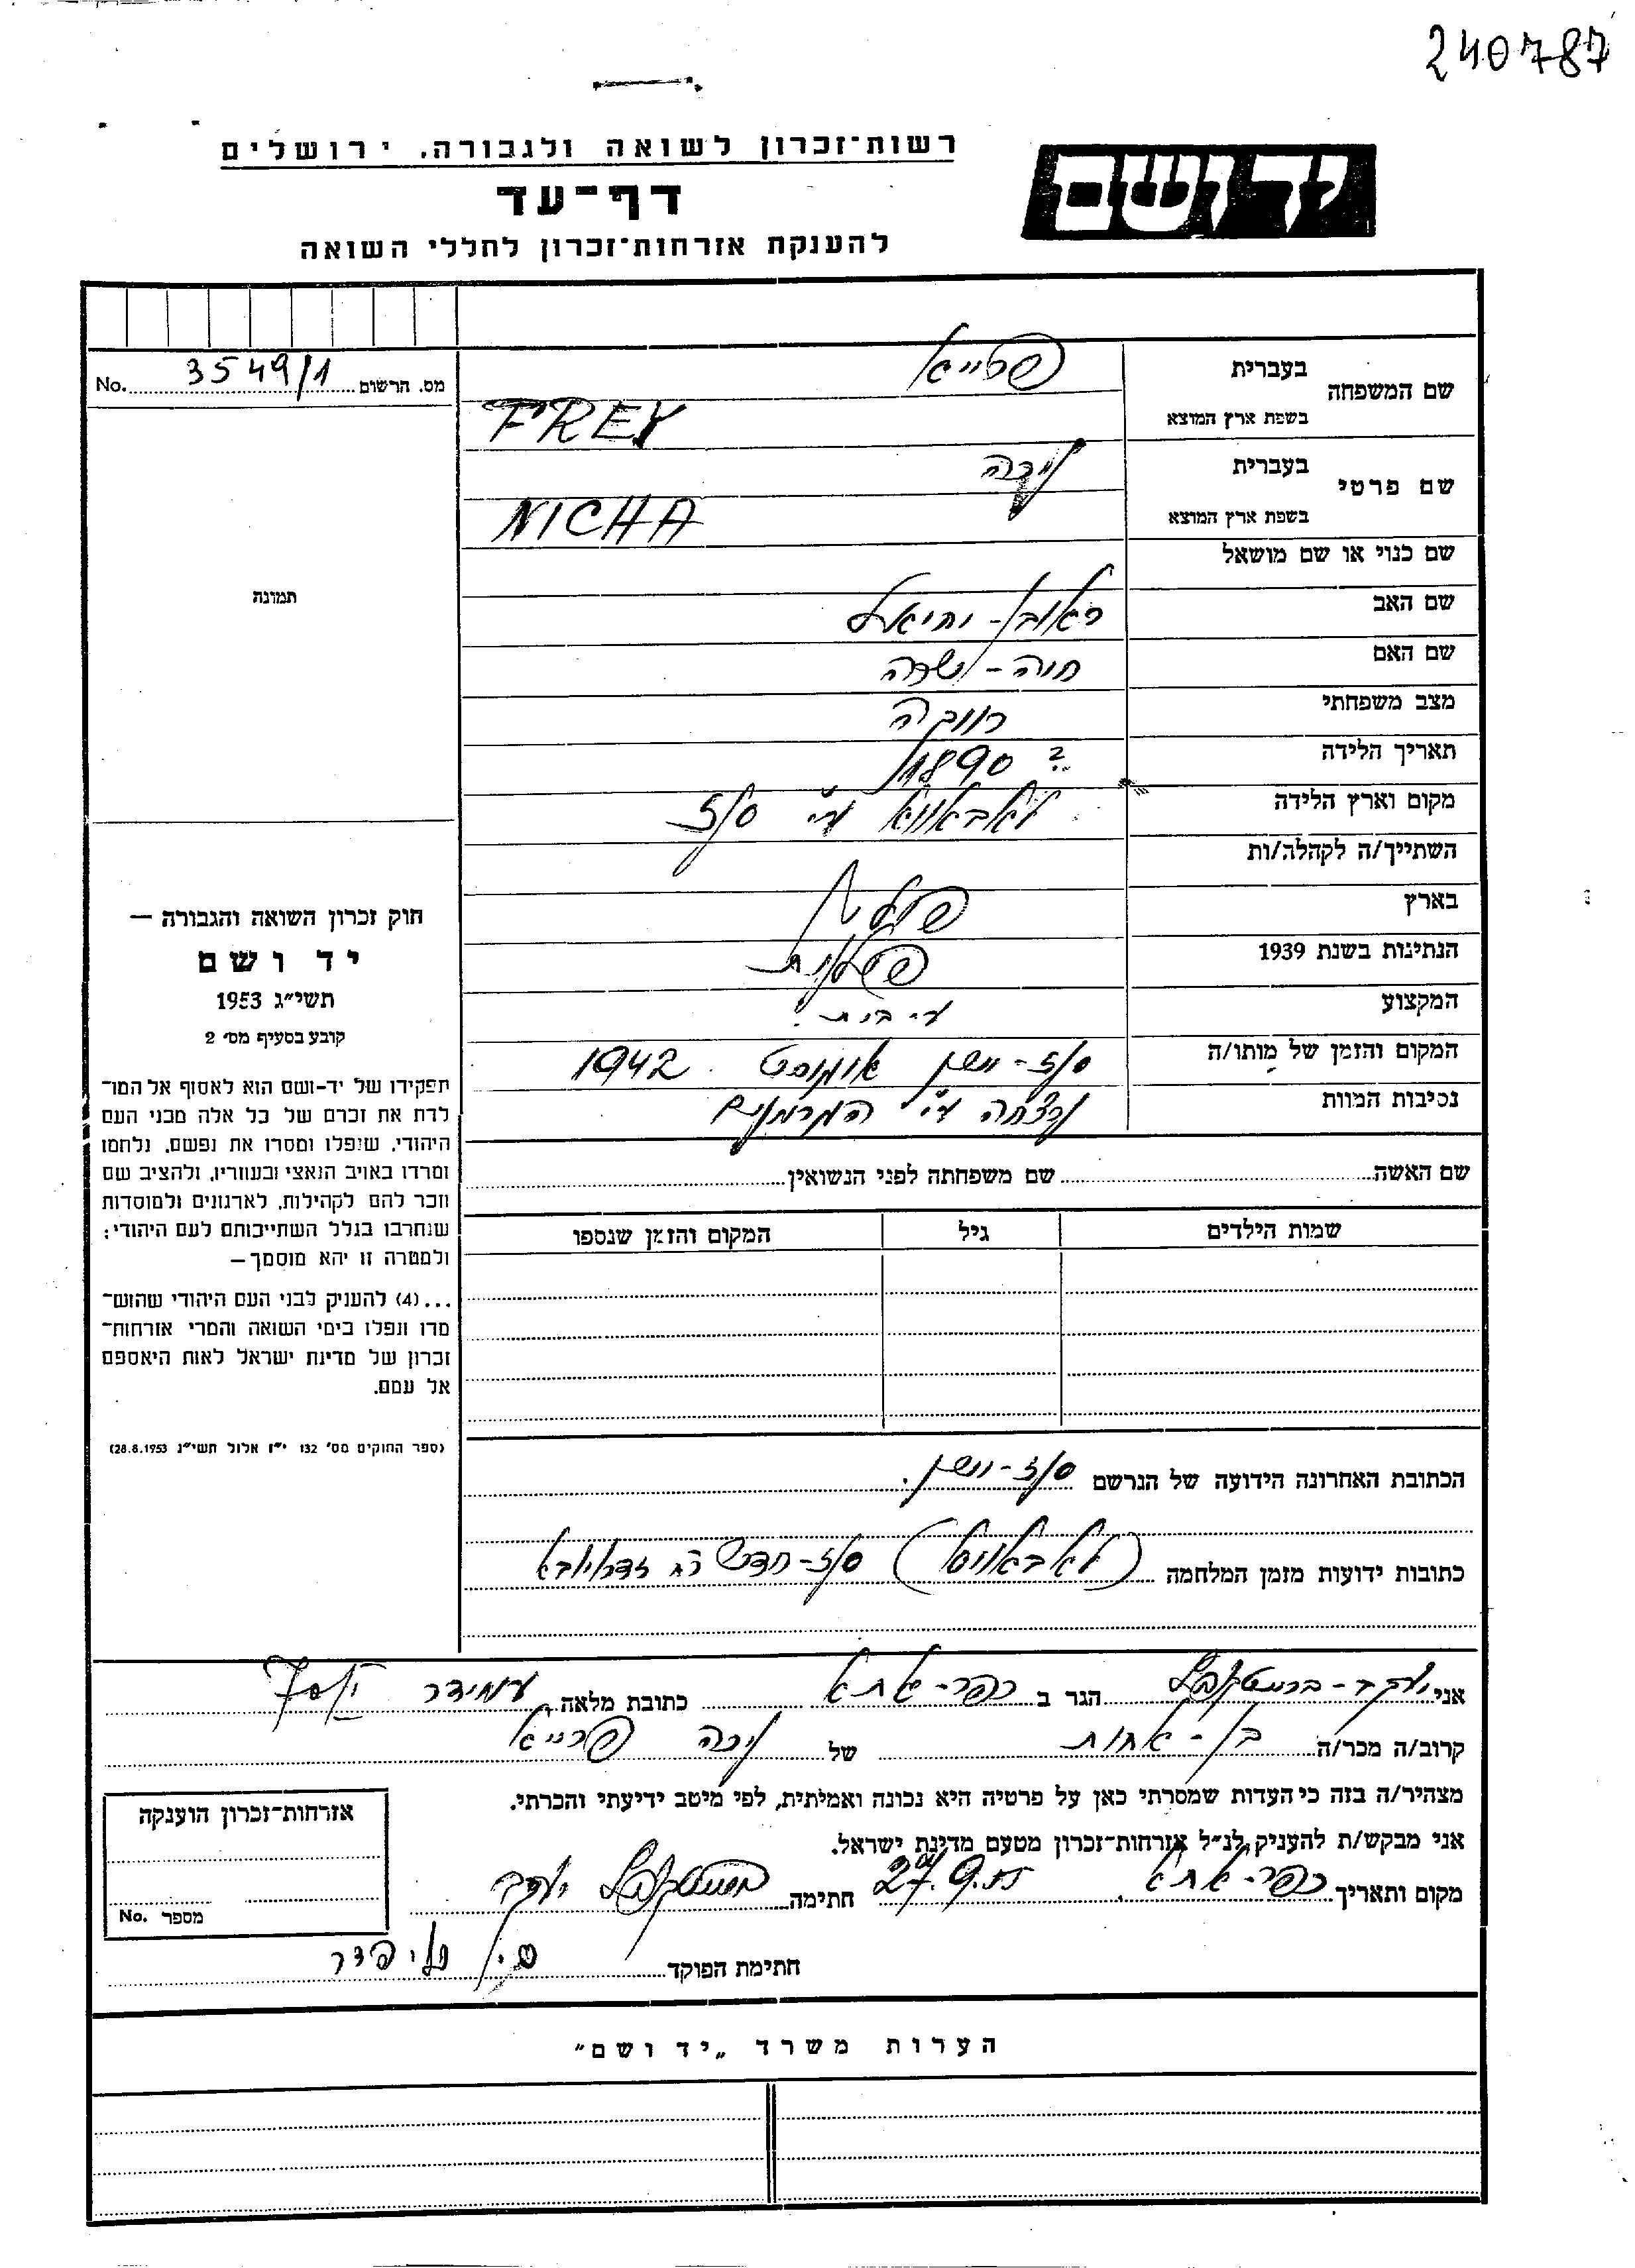 240787
ידושם
רשות־זכרון לשואה ולגבורה, ירושלים
דף־עד
להענקת אזרחות־זכרון לחללי השואה
מס. הרשום 3549/1 No.
תמונה
שם המשפחה
בעברית פרייא
בשפת ארץ המוצא FREY
שם פרטי
בעברית ניכה
בשפת ארץ המוצא NICHA
שם כנוי או שם מושאל
שם האב ראובן - יחיאל
שם האם חוה - שרה
מצב משפחתי רווקה
תאריך הלידה 1890 ?
מקום וארץ הלידה לאבאווא ע"י סנז
השתייך/ה לקהלה/ות
בארץ פולין
הנתינות בשנת 1939 פולנית
המקצוע
המקום והזמן של מותו/ה סנז - ישן אוגוסט 1942
נסיבות המוות נרצחה ע"י הגרמנים
שם האשה
שם משפחתה לפני הנשואין
שמות הילדים
גיל
המקום והזמן שנספו
הכתובת האחרונה הידועה של הנרשם סנז - ישן.
כתובות ידועות מזמן המלחמה (לאבאווא) סנז - חדש רח
חוק זכרון השואה והגבורה —
יד ושם
תשי״ג 1953
קובע בסעיף מס׳ 2
תפקידו של יד-ושם הוא לאסוף אל המו־
לדת את זכרם של כל אלה מבני העם
היהודי, שנפלו ומסרו את נפשם, נלחמו
ומרדו באויב הנאצי ובעוזריו, ולהציב שם
וזכר להם לקהילות, לארגונים ולמוסדות
שנחרבו בגלל השתייכותם לעם היהודי;
ולמטרה זו יהא מוסמך —
...(4) להעניק לבני העם היהודי שהוש־
מדו ונפלו בימי השואה והמרי אזרחות־
זכרון של מדינת ישראל לאות היאספם
אל עמם.
(ספר החוקים מס׳ 132 י״ז אלול תשי״ג 28.8.1953)
אני יעקב - הגר ב כפר - אתא כתובת מלאה עמידר
קרוב/ה מכר/ה בן - אחות של ניכה פרייא
מצהיר/ה בזה כי העדות שמסרתי כאן על פרטיה היא נכונה ואמיתית, לפי מיטב ידיעתי והכרתי.
אני מבקש/ת להעניק לנ״ל אזרחות־זכרון מטעם מדינת ישראל.
מקום ותאריך כפר - אתא 27.9.55 חתימה יעקב
חתימת הפוקד
אזרחות־זכרון הוענקה
מספר No.
הערות משרד „יד ושם״